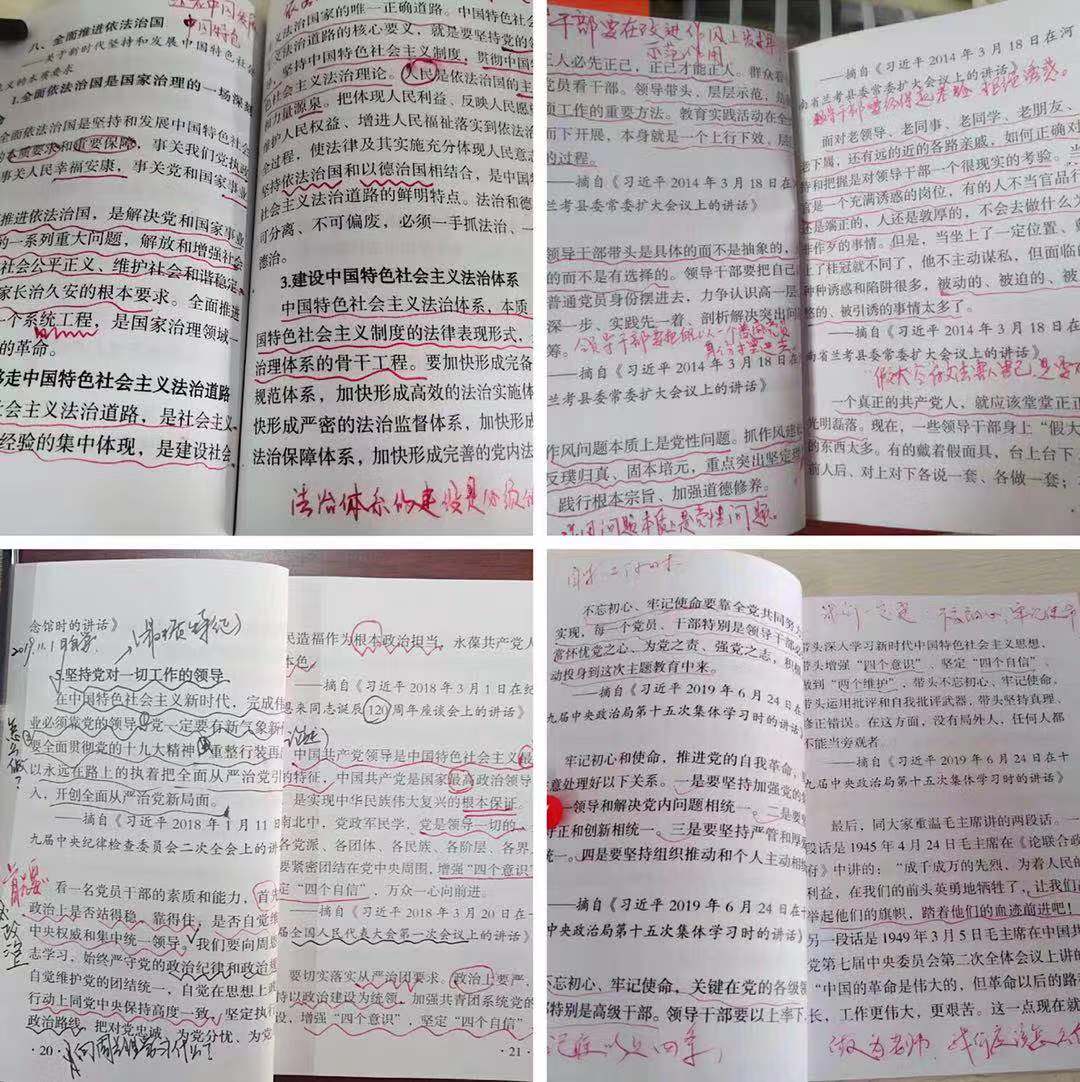 八、全面推进依法治国
——关于新时代坚持和发展中国特色社会
义的本质要求
1.全面依法治国是国家治理的一场深刻
全面依法治国是坚持和发展中国特色社会
的本质要求和重要保障，事关我们党执政
事关人民幸福安康，事关党和国家事业
推进依法治国，是解决党和国家事业
的一系列重大问题，解放和增强社会
社会公平正义、维护社会和谐稳定、
家长治久安的根本要求。全面推进
一个系统工程，是国家治理领域一
的革命。
走中国特色社会主义法治道路
会主义法治道路，是社会主义
经验的集中体现，是建设社会
义法治国家的唯一正确道路。中国特色社
义法治道路的核心要义，就是要坚持党的领
坚持中国特色社会主义制度，贯彻中国
色社会主义法治理论。人民是依法治国的主
和力量源泉。把体现人民利益、反映人民愿
护人民权益、增进人民福祉落实到依法治
全过程，使法律及其实施充分体现人民意志
坚持依法治国和以德治国相结合，是中国特
社会主义法治道路的鲜明特点。法治和德
可分离、不可偏废，必须一手抓法治、一
德治。
3.建设中国特色社会主义法治体系
中国特色社会主义法治体系，本质
国特色社会主义制度的法律表现形式，
治理体系的骨干工程。要加快形成完备
规范体系，加快形成高效的法治实施体
快形成严密的法治监督体系，加快形成
法治保障体系，加快形成完善的党内法
法治体系的建设是
干部要在改进作风上发挥
示范作用
正人必先正己，正己才能正人。群众看
党员看干部。领导带头、层层示范，是
项工作的重要方法。教育实践活动在全
而下开展，本身就是一个上行下效、层
的过程。
——摘自《习近平2014年3月18日在
兰考县委常委扩大会议上的讲话》
领导干部带头是具体的而不是抽象的，
的而不是有选择的。领导干部要把自己
普通党员身份摆进去，力争认识高一层
深一步、实践先一着、剖析解决突出问
筹。
——摘自《习近平2014年3月18日在
兰考县委常委扩大会议上的讲话》
作风问题本质上是党性问题。抓作风建
反璞归真、固本培元，重点突出坚定理
践行根本宗旨、加强道德修养。
作风问题本质上是党性问题。
——摘自《习近平2014年3月18日在河
南省兰考县委常委扩大会议上的讲话》
领导干部要经得起考验 拒绝诱惑。
面对老领导、老同事、老同学、老朋友、
老下属，还有远的近的各路亲戚，如何正确对
待和把握是对领导干部一个很现实的考验。当
官是一个充满诱惑的岗位，有的人不当官品行
还是端正的，人还是敦厚的，不会去做什么为
非作歹的事情。但是，当坐上了一定位置、戴
上了桂冠就不同了，他不主动谋私，但面临
种种诱惑和陷阱很多，被动的、被迫的、被
的、被引诱的事情太多了。
——摘自《习近平2014年3月18日在
南省兰考县委常委扩大会议上的讲话》
一个真正的共产党人，就应该堂堂正正
光明磊落。现在，一些领导干部身上“假大
的东西太多。有的戴着假面具，台上台下、
前人后、对上对下各说一套、各做一套；
念馆时的讲话》
5.坚持党对一切工作的领导
在中国特色社会主义新时代，完成伟
业必须靠党的领导，党一定要有新气象新
要全面贯彻党的十九大精神，重整行装再
以永远在路上的执着把全面从严治党引
入，开创全面从严治党新局面。
——摘自《习近平2018年1月11日
九届中央纪律检查委员会二次全会上的讲
看一名党员干部的素质和能力，首先
政治上是否站得稳、靠得住，是否自觉维
中央权威和集中统一领导。我们要向周恩
志学习，始终严守党的政治纪律和政治规
自觉维护党的团结统一，自觉在思想上政
行动上同党中央保持高度一致，坚定执行
政治路线，把对党忠诚、为党分忧、为党
·20·
民造福作为根本政治担当，永葆共产党人
本色。
——摘自《习近平2018年3月1日在纪
恩来同志诞辰120周年座谈会上的讲话》
中国共产党领导是中国特色社会主义最
的特征，中国共产党是国家最高政治领导
是实现中华民族伟大复兴的根本保证。
南北中，党政军民学，党是领导一切的。
各党派、各团体、各民族、各阶层、各界
要紧密团结在党中央周围，增强“四个意识”
定“四个自信”，万众一心向前进。
——摘自《习近平2018年3月20日在
届全国人民代表大会第一次会议上的讲话》
要切实落实从严治团要求。政治上要严，
持以政治建设为统领，加强共青团系统党的
设，增强“四个意识”，坚定“四个自信”
·21·
不忘初心、牢记使命要靠全党共同努力
实现，每一个党员、干部特别是领导干部必
常怀忧党之心、为党之责、强党之志，积极
动投身到这次主题教育中来。
——摘自《习近平2019年6月24日在
九届中央政治局第十五次集体学习时的讲话》
牢记初心和使命，推进党的自我革命，
意处理好以下关系。一是要坚持加强党的
一领导和解决党内问题相统一。二是要坚
守正和创新相统一。三是要坚持严管和厚爱
统一。四是要坚持组织推动和个人主动相
——摘自《习近平2019年6月24日在十
中央政治局第十五次集体学习时的讲话》
不忘初心、牢记使命，关键在党的各级领
部特别是高级干部。领导干部要以上率下，
带头深入学习新时代中国特色社会主义思想，
带头增强“四个意识”、坚定“四个自信”、
做到“两个维护”，带头不忘初心、牢记使命，
带头运用批评和自我批评武器，带头坚持真理、
修正错误。在这方面，没有局外人，任何人都
不能当旁观者。
——摘自《习近平2019年6月24日在十
届中央政治局第十五次集体学习时的讲话》
最后，同大家重温毛主席讲的两段话。一
段话是1945年4月24日毛主席在《论联合政
府》中讲的：“成千成万的先烈，为着人民的
利益，在我们的前头英勇地牺牲了，让我们高
举起他们的旗帜，踏着他们的血迹前进吧！”
另一段话是1949年3月5日毛主席在中国共
党第七届中央委员会第二次全体会议上讲的
“中国的革命是伟大的，但革命以后的路
长，工作更伟大，更艰苦。这一点现在就